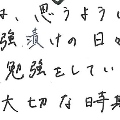 は、思うように
強漬けの日々
勉強をしてい
大切な時期